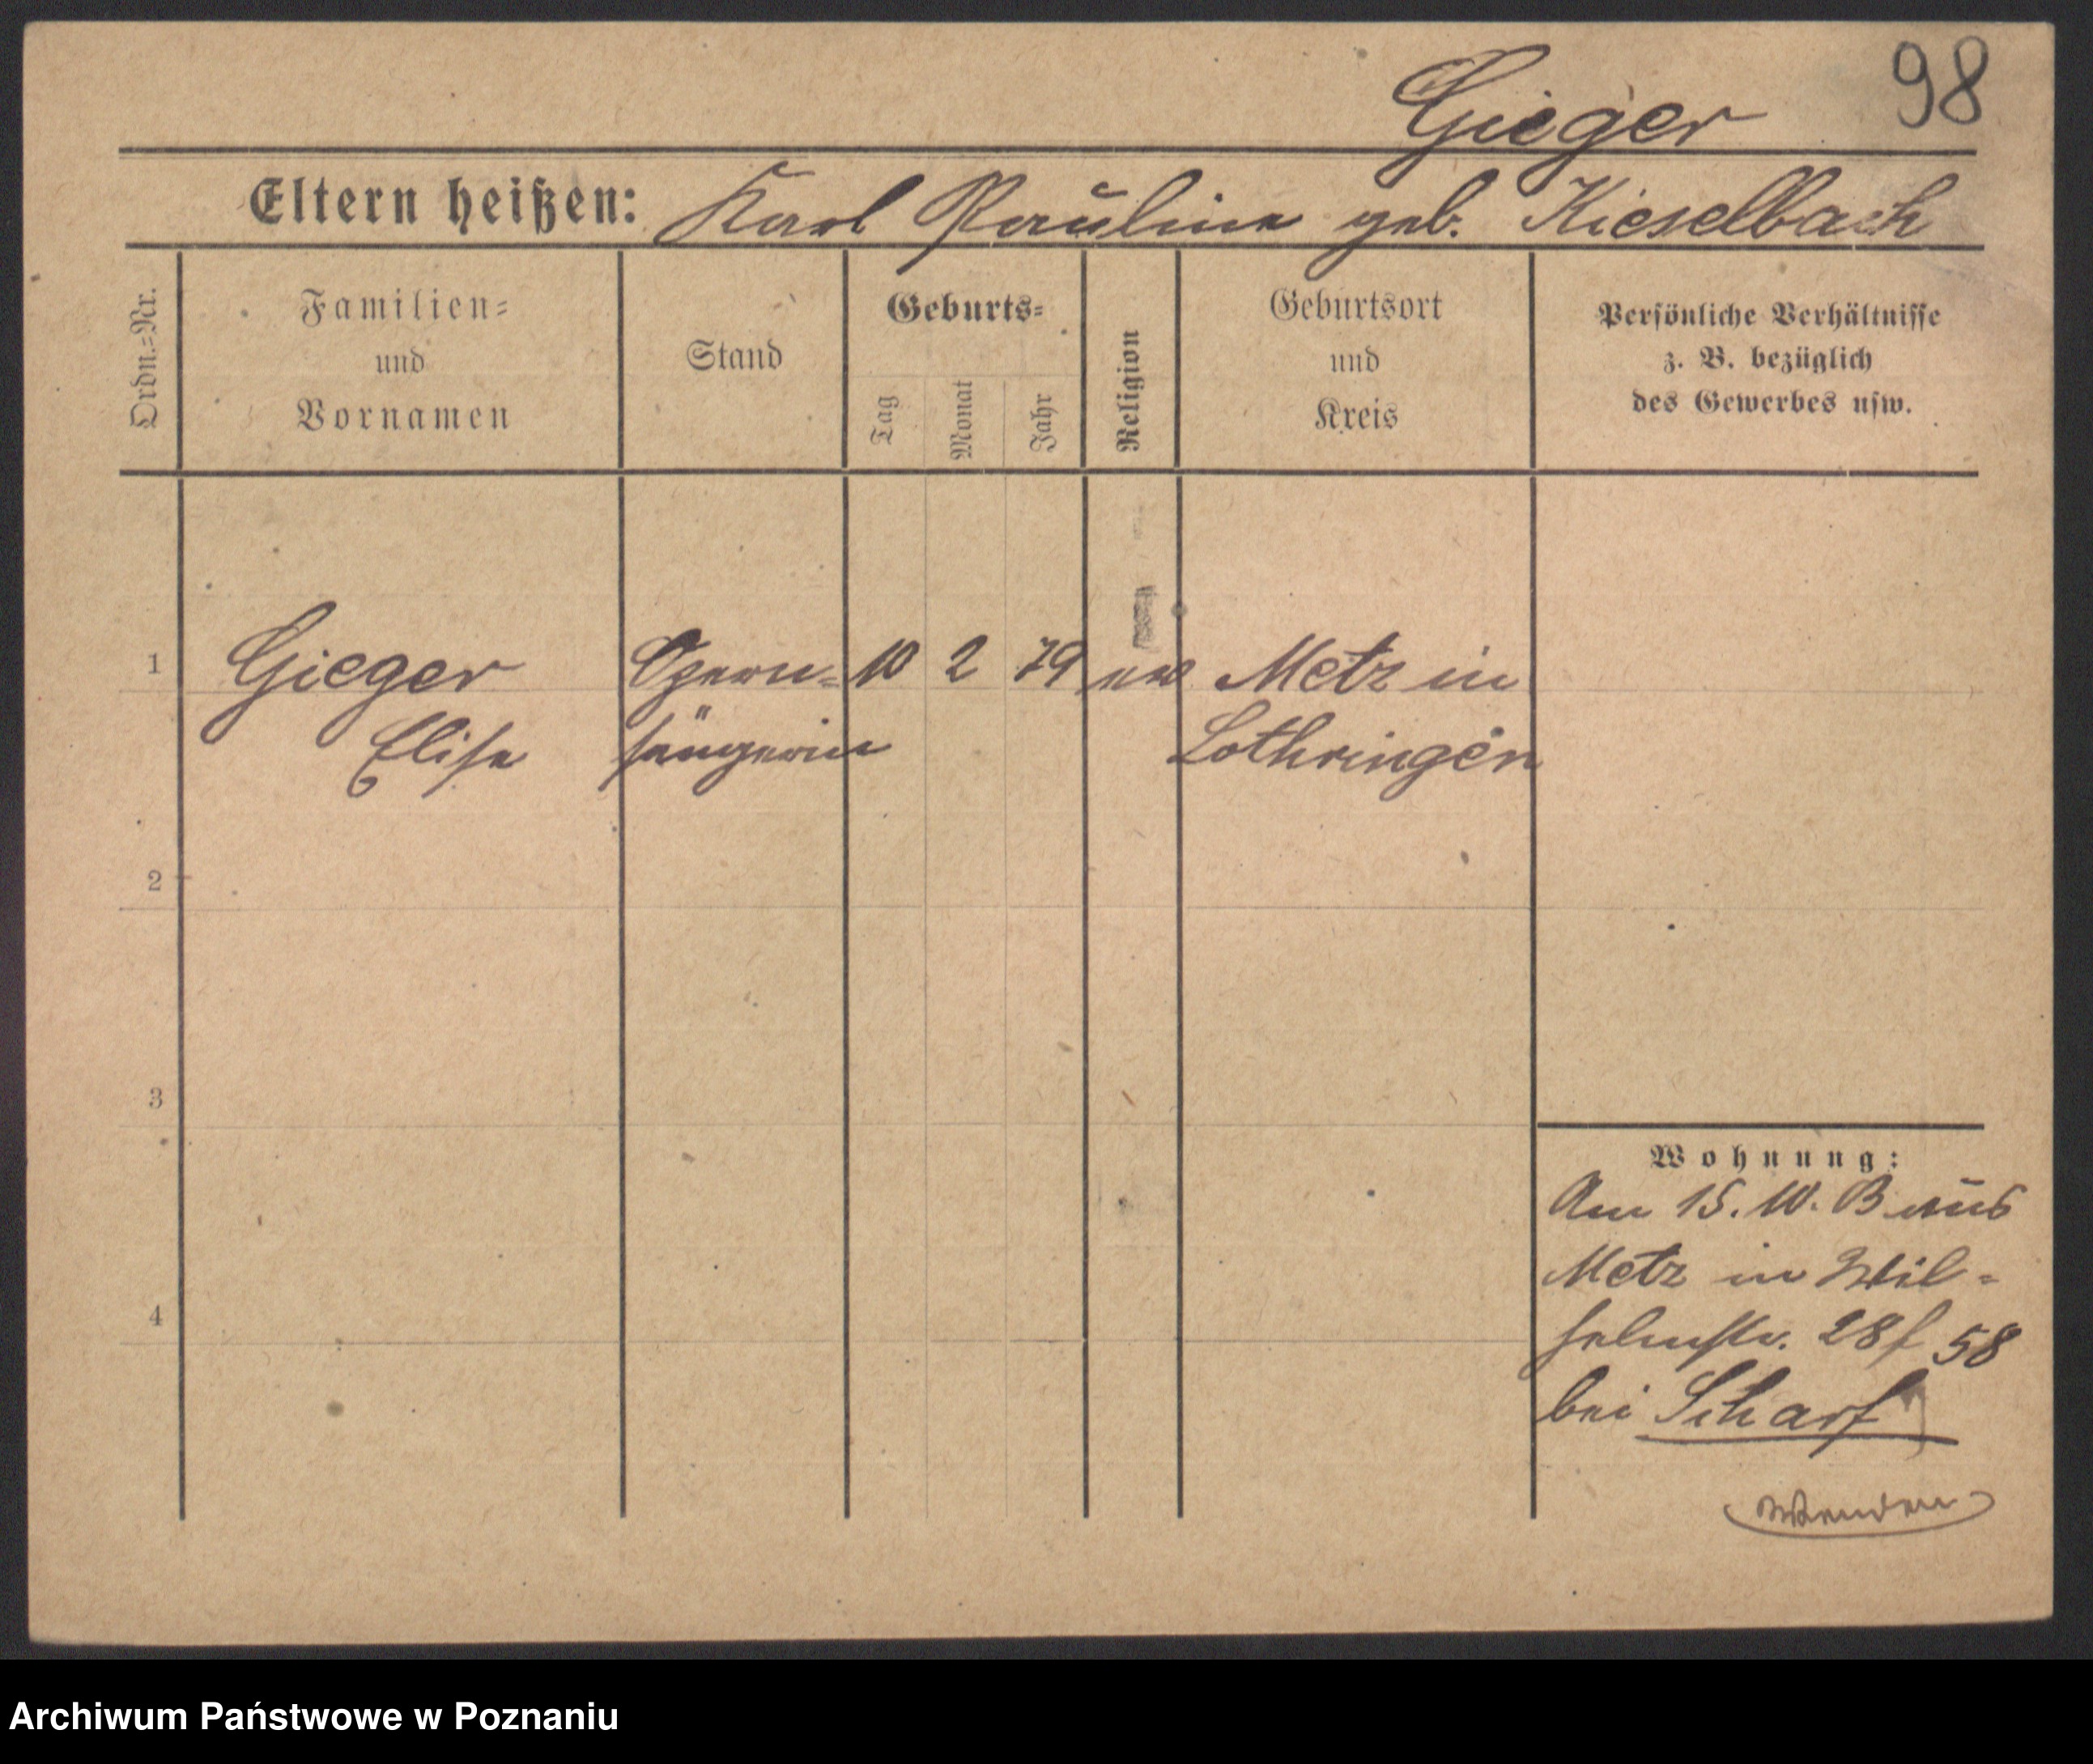 98
Gieger
Eltern heißen: Karl Pauline geb. Kieselbach
Ordn.=Nr.
Familien=
und
Vornamen
Stand
Geburts=
Tag
Monat
Jahr
Religion
Geburtsort
und
Kreis
Persönliche Verhältnisse
z. B. bezüglich
des Gewerbes usw.
1 Gieger Opern= 10 2 79 Metz in
Elise sängerin Lothringen
2
3
4
Wohnung:
Am 15. 10. 13 aus
Metz in Wil=
helmstr. 28 f 58
bei Scharf
Wenden
Archiwum Państwowe w Poznaniu